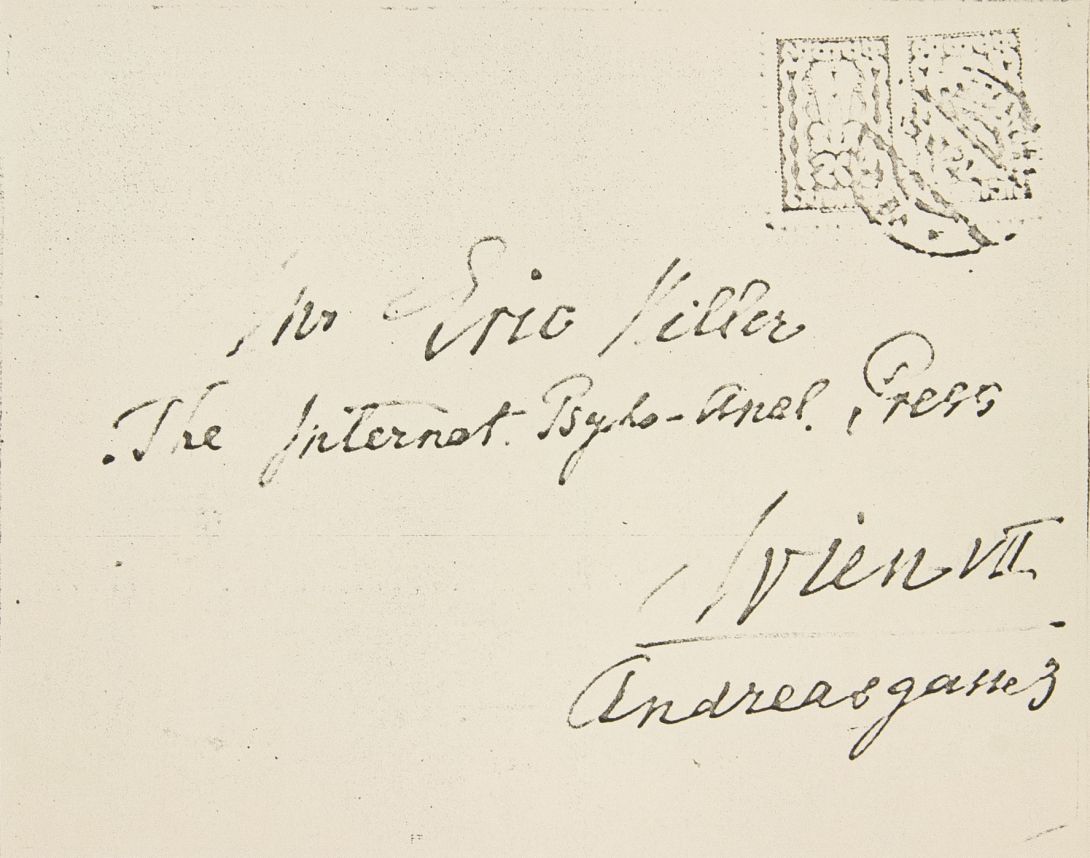 Mr Eric Hiller
The Internat. Psycho-Anal. Press
Wien VII
Andreasgasse 3